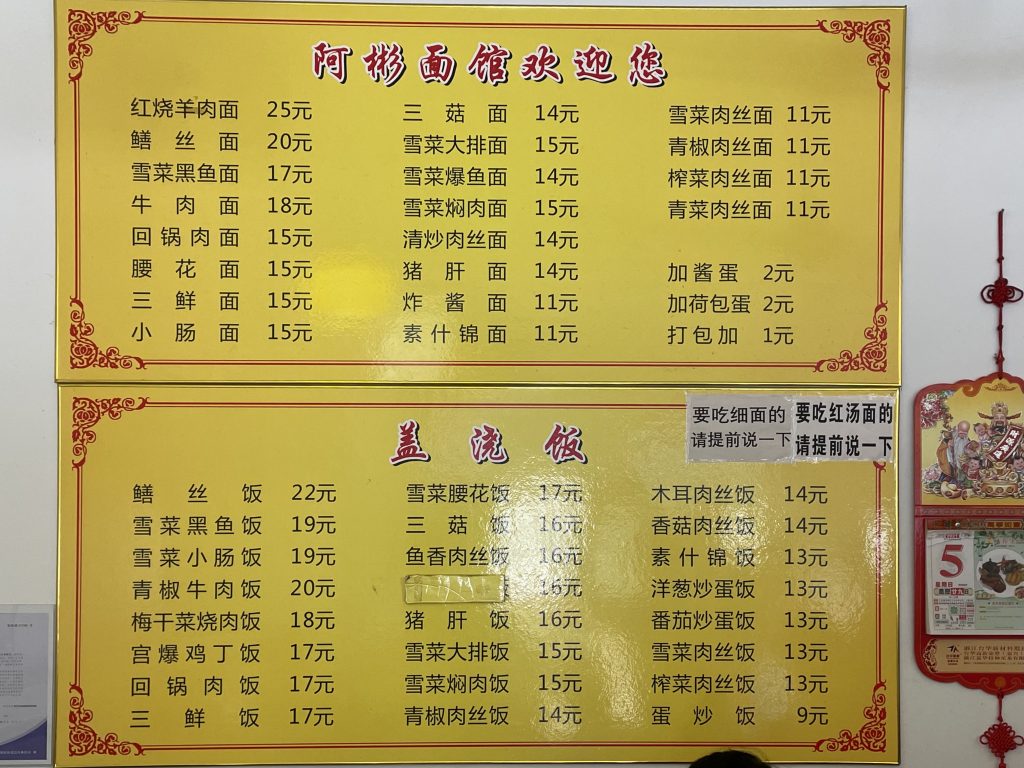 阿彬面馆欢迎您
红烧羊肉面 25元
鳝丝面 20元
雪菜黑鱼面 17元
牛肉面 18元
回锅肉面 15元
腰花面 15元
三鲜面 15元
小肠面 15元
三菇面 14元
雪菜大排面 15元
雪菜爆鱼面 14元
雪菜焖肉面 15元
清炒肉丝面 14元
猪肝面 14元
炸酱面 11元
素什锦面 11元
雪菜肉丝面 11元
青椒肉丝面 11元
榨菜肉丝面 11元
青菜肉丝面 11元
加酱蛋 2元
加荷包蛋 2元
打包加 1元
要吃细面的
请提前说一下
要吃红汤面的
请提前说一下
盖浇饭
鳝丝饭 22元
雪菜黑鱼饭 19元
雪菜小肠饭 19元
青椒牛肉饭 20元
梅干菜烧肉饭 18元
宫爆鸡丁饭 17元
回锅肉饭 17元
三鲜饭 17元
雪菜腰花饭 17元
三菇饭 16元
鱼香肉丝饭 16元
16元
猪肝饭 16元
雪菜大排饭 15元
雪菜焖肉饭 15元
青椒肉丝饭 14元
木耳肉丝饭 14元
香菇肉丝饭 14元
素什锦饭 13元
洋葱炒蛋饭 13元
番茄炒蛋饭 13元
雪菜肉丝饭 13元
榨菜肉丝饭 13元
蛋炒饭 9元
5
星期日
廿九